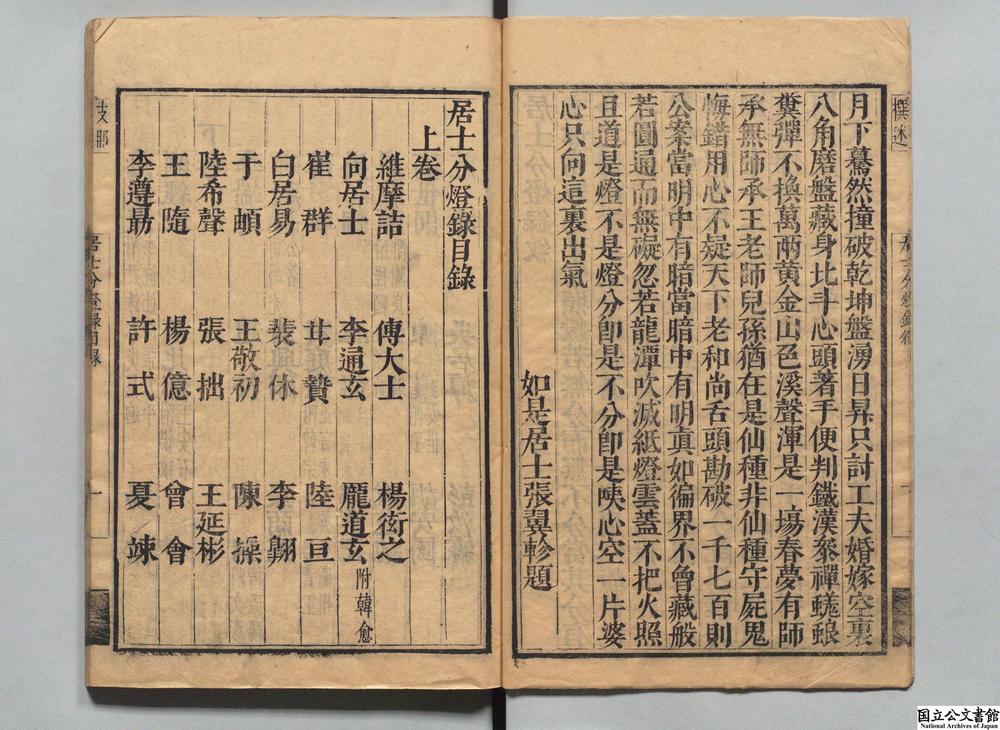 撰述
月下驀然撞破乾坤盤湧日昇只討工夫婚嫁空裏
八角磨盤藏身北斗心頭著手便判鐵漢叅禪蜣蜋
糞彈不換萬兩黃金山色溪聲渾是一場春夢有師
承無師承王老師兒孫猶在是仙種非仙種守屍鬼
悔錯用心不疑天下老和尚舌頭勘破一千七百則
公案當明中有暗當暗中有明真如徧界不曾藏般
若圓通而無礙忽若龍潭吹滅紙燈雲蓋不把火照
且道是燈不是燈分卽是不分卽是㖿心空一片婆
心只向這裏出氣
如是居士張翼軫題
居士分燈錄目錄
上卷
維摩詰 傅大士 楊衒之
向居士 李通玄 龐道玄 附韓愈
崔群 甘贄 陸亘
白居易 裴休 李翱
于頔 王敬初 陳操
陸希聲 張拙 王延彬
王隨 楊億 曾會
李遵勗 許式 夏竦
支那
居士分燈錄目錄
一
国立公文書館
National Archives of Japan